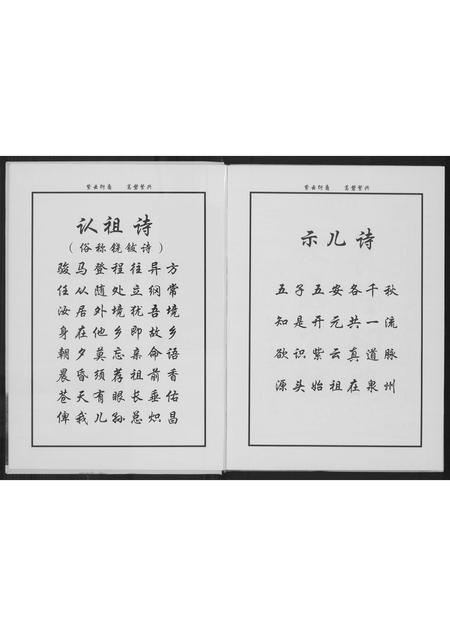 紫云衍斋　嵩磐繁兴
认祖诗
（俗称铙钹诗）
骏马登程往异方
任从随处立纲常
汝居外境犹吾境
身在他乡即故乡
朝夕莫忘亲命语
晨昏须荐祖前香
苍天有眼长垂佑
俾我儿孙总炽昌
紫云衍斋　嵩磐繁兴
示儿诗
五子五安各千秋
知是开元共一流
欲识紫云真道脉
源头始祖在泉州